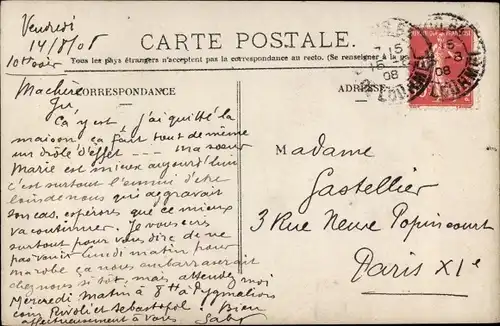 Vendredi
14/8/08
10h soir
CARTE POSTALE.
Tous les pays étrangers n'acceptent pas la correspondance au recto. (Se renseigner à la
CORRESPONDANCE
ADRESSE
Ma chère
Ça y est j'ai quitté la
maison ça fait tout de même
un drôle d'effet --- ma sœur
Marie est mieux aujourd'hui
c'est surtout l'ennui d'être
loin de nous qui aggravait
son cas, espérons que ce mieux
va continuer. Je vous écris
surtout pour vous dire de ne
pas venir lundi matin pour
ma robe ça nous embarrasserait
chez nous si tôt, mais attendez moi
Mercredi matin à 8h à Pygmalion
coin Rivoli et Sébastopol Bien
affectueusement à vous Gaby
MADAME
Gastellier
3 Rue Neuve Popincourt
Paris XIe
15
16-8
08